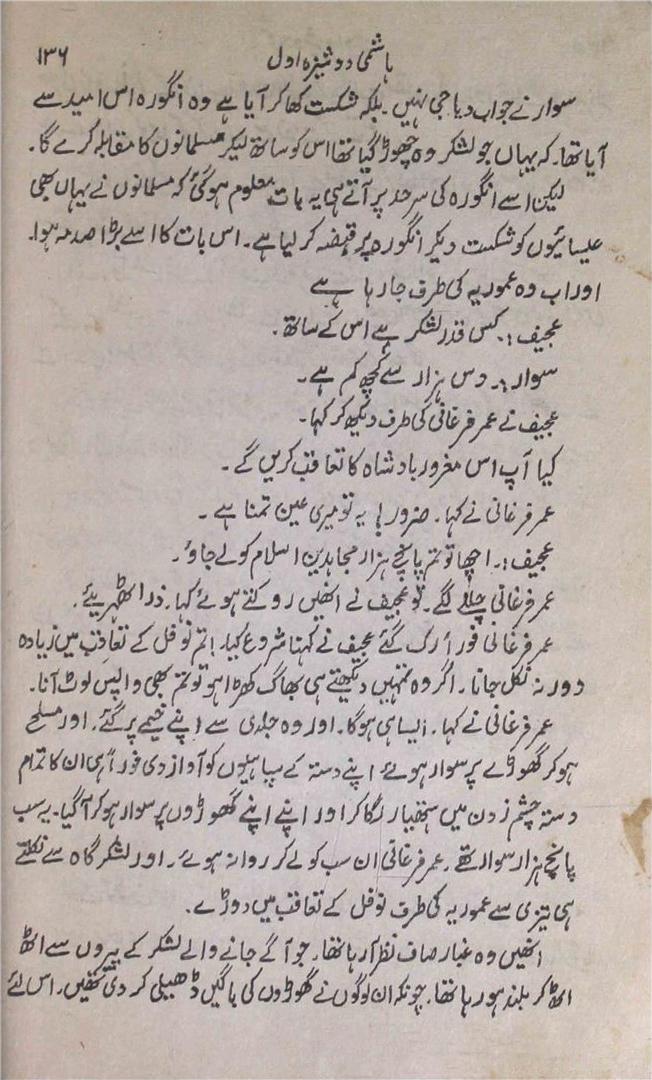 ۱۳۶
ہاشمی دوشیزہ اول
سوار نے جواب دیا جی نہیں۔ بلکہ شکست کھا کر آیا ہے وہ انگورہ اس امید سے
آیا تھا۔ کہ یہاں جو لشکر وہ چھوڑ گیا تھا اس کو ساتھ لیکر مسلمانوں کا مقابلہ کرے گا۔
لیکن اسے انگورہ کی سرحد پر آتے ہی یہ بات معلوم ہو گئی کہ مسلمانوں نے یہاں بھی
عیسائیوں کو شکست دیکر انگورہ پر قبضہ کر لیا ہے۔ اس بات کا اسے بڑا صدمہ ہوا۔
اور اب وہ عموریہ کی طرف جا رہا ہے
عجیف :۔ کس قدر لشکر ہے اس کے ساتھ۔
سوار :۔ دس ہزار سے کچھ کم ہے۔
عجیف نے عمر فرغانی کی طرف دیکھ کر کہا۔
کیا آپ اس مغرور بادشاہ کا تعاقب کریں گے۔
عمر فرغانی نے کہا۔ ضرور! یہ تو میری عین تمنا ہے۔
عجیف :۔ اچھا تو تم پانچ ہزار مجاہدین اسلام کو لے جاؤ۔
عمر فرغانی چلنے لگے۔ تو عجیف نے انھیں روکتے ہوئے کہا۔ ذرا ٹھہریئے۔
عمر فرغانی فوراً رک گئے عجیف نے کہنا شروع کیا! تم نوفل کے تعاقب میں زیادہ
دور نہ نکل جانا۔ اگر وہ تمہیں دیکھتے ہی بھاگ کھڑا ہو تو تم بھی واپس لوٹ آنا۔
عمر فرغانی نے کہا۔ ایسا ہی ہوگا۔ اور وہ جلدی سے اپنے خیمے پر گئے۔ اور مسلح
ہو کر گھوڑے پر سوار ہوئے اپنے دستہ کے سپاہیوں کو آواز دی فوراً ہی ان کا تمام
دستہ چشم زدن میں ہتھیار لگا کر اور اپنے اپنے گھوڑوں پر سوار ہو کر آ گیا۔ یہ سب
پانچ ہزار سوار تھے۔ عمر فرغانی ان سب کو لے کر روانہ ہوئے۔ اور لشکر گاہ سے نکلتے
ہی تیزی سے عموریہ کی طرف نوفل کے تعاقب میں دوڑے۔
انھیں وہ غبار صاف نظر آ رہا تھا۔ جو آگے جانے والے لشکر کے پیروں سے اٹھ
اٹھ کر بلند ہو رہا تھا۔ چونکہ ان لوگوں نے گھوڑوں کی باگیں ڈھیلی کر دی تھیں۔ اس لئے